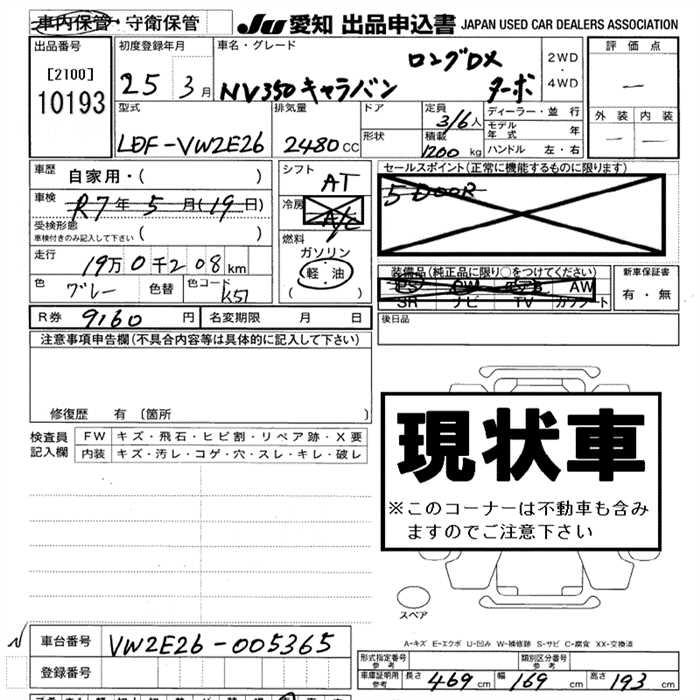 車内保管・守衛保管 JU 愛知 出品申込書 JAPAN USED CAR DEALERS ASSOCIATION
出品番号 初度登録年月 車名・グレード 評価点
[2100] 10193 25 3月 NV350キャラバン ロングDX ターボ 2WD・4WD —
型式 排気量 ドア 定員 3/6人 ディーラー・並行 外装 内装
LDF-VW2E26 2480CC 形状 積載 1200kg モデル年式 年 — —
ハンドル 左・右
車歴 自家用・( ) シフト AT セールスポイント(正常に機能するものに限ります)
車検 R7年5月(19日) 冷房 A/C 5DOOR
受検形態 ( )
車検付きのみ記入して下さい
燃料 ガソリン
走行 19万0千208km 軽油
( )
装備品(純正品に限り○をつけてください) 新車保証書
色 グレー 色替 色コード K51 PS PW AW 有・無
SR ナビ TV カワシート
R券 9160円 名変期限 月 日 後日品
注意事項申告欄(不具合内容等は具体的に記入して下さい)
修復歴 有 [箇所 ]
検査員記入欄 FW キズ・飛石・ヒビ割・リペア跡・X要
内装 キズ・汚レ・コゲ・穴・スレ・キレ・破レ
現状車
※このコーナーは不動車も含み
ますのでご注意下さい
スペア
A-キズ E-エクボ U-凹み W-補修跡 S-サビ C-腐食 XX-交換済
車台番号 VW2E26-005365
形式指定番号 参考 類別区分番号 参考
登録番号 車庫証明用 参考 長さ 469cm 幅 169cm 高さ 193cm